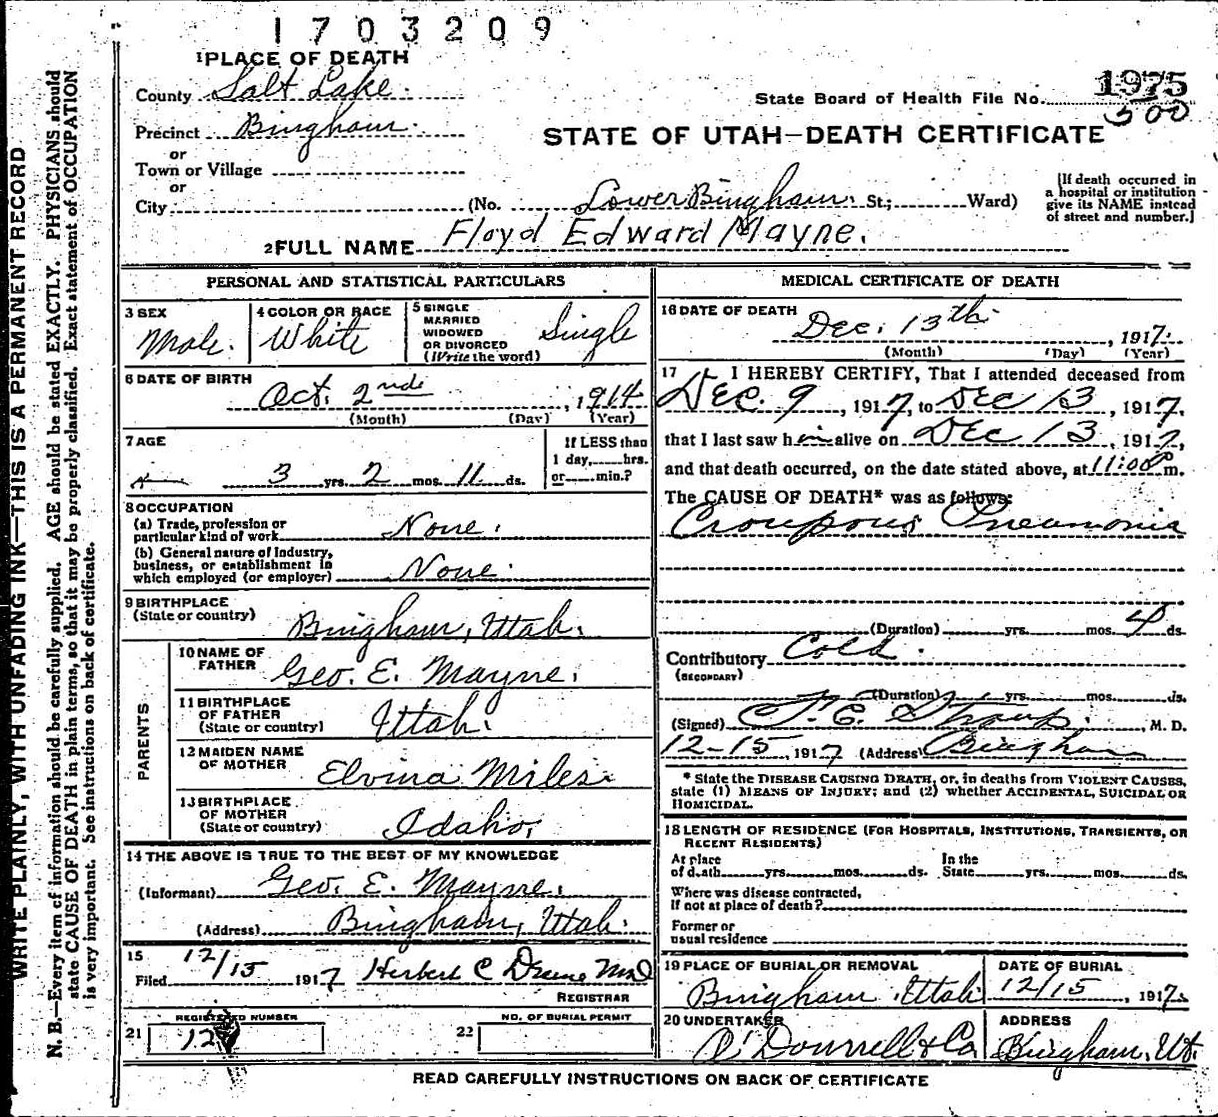 1703209
1PLACE OF DEATH
County Salt Lake.
State Board of Health File No. 1975
500
Precinct Bingham.
STATE OF UTAH—DEATH CERTIFICATE
or
Town or Village
or
City (No. Lower Bingham. St.; Ward)
[If death occurred in
a hospital or institution
give its NAME instead
of street and number.]
2FULL NAME Floyd Edward Mayne.
PERSONAL AND STATISTICAL PARTICULARS
3 SEX
Male.
4 COLOR OR RACE
White
5 SINGLE
MARRIED
WIDOWED
OR DIVORCED
(Write the word)
Single
6 DATE OF BIRTH
Oct. 2nd, 1914
(Month) (Day) (Year)
7 AGE
3 yrs. 2 mos. 11 ds.
If LESS than
1 day, hrs.
or min.?
8 OCCUPATION
(a) Trade, profession or
particular kind of work None.
(b) General nature of Industry,
business, or establishment in
which employed (or employer) None.
9 BIRTHPLACE
(State or country) Bingham, Utah.
PARENTS
10 NAME OF
FATHER Geo. E. Mayne.
11 BIRTHPLACE
OF FATHER
(State or country) Utah.
12 MAIDEN NAME
OF MOTHER Elvina Miles.
13 BIRTHPLACE
OF MOTHER
(State or country) Idaho,
14 THE ABOVE IS TRUE TO THE BEST OF MY KNOWLEDGE
(Informant) Geo. E. Mayne.
(Address) Bingham, Utah.
15
Filed 12/15 1917 Herbert C
REGISTRAR
REGISTERED NUMBER
21 12
NO. OF BURIAL PERMIT
22
MEDICAL CERTIFICATE OF DEATH
16 DATE OF DEATH
Dec. 13th, 1917.
(Month) (Day) (Year)
17 I HEREBY CERTIFY, That I attended deceased from
Dec. 9, 1917, to Dec 13, 1917,
that I last saw him alive on Dec 13, 1917,
and that death occurred, on the date stated above, at 11:00 P m.
The CAUSE OF DEATH* was as follows:
Croupous Pneamonia
(Duration) yrs. mos. 4 ds.
Contributory Cold.
(SECONDARY)
(Duration) yrs. mos. ds.
(Signed) M. D.
12-15, 1917 (Address) Bingham
* State the DISEASE CAUSING DEATH, or, in deaths from VIOLENT CAUSES,
state (1) MEANS OF INJURY; and (2) whether ACCIDENTAL, SUICIDAL OR
HOMICIDAL.
18 LENGTH OF RESIDENCE (FOR HOSPITALS, INSTITUTIONS, TRANSIENTS, OR
RECENT RESIDENTS)
At place
of death yrs. mos. ds.
In the
State yrs. mos. ds.
Where was disease contracted,
If not at place of death?
Former or
usual residence
19 PLACE OF BURIAL OR REMOVAL
Bingham, Utah
DATE OF BURIAL
12/15, 1917.
20 UNDERTAKER
O'Donnell & Co
ADDRESS
Bingham, Ut.
READ CAREFULLY INSTRUCTIONS ON BACK OF CERTIFICATE
WRITE PLAINLY, WITH UNFADING INK—THIS IS A PERMANENT RECORD
N. B.—Every item of information should be carefully supplied. AGE should be stated EXACTLY. PHYSICIANS should
state CAUSE OF DEATH in plain terms, so that it may be properly classified. Exact statement of OCCUPATION
is very important. See instructions on back of certificate.